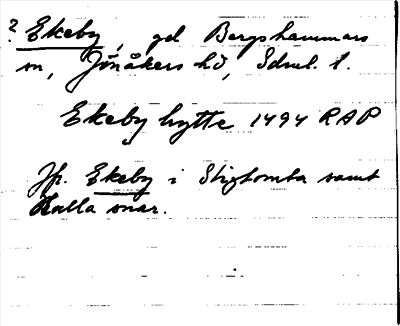 ? Ekeby, gd Bergshammars
sn, Jönåkers hd, Sdml. l.
Ekeby hytte 1494 RAP
Jfr. Ekeby i Stigtomta samt
Halla snar.